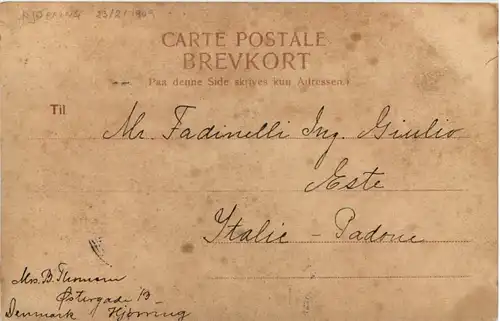 Hjørring 23/2/1909
CARTE POSTALE
BREVKORT
(Paa denne Side skrives kun Adressen.)
Til
Mr. Fadinelli Ing. Giulio
Este
Italie - Padoue
Mrs. B. Thomsen
Østergade 13
Denmark Hjørring